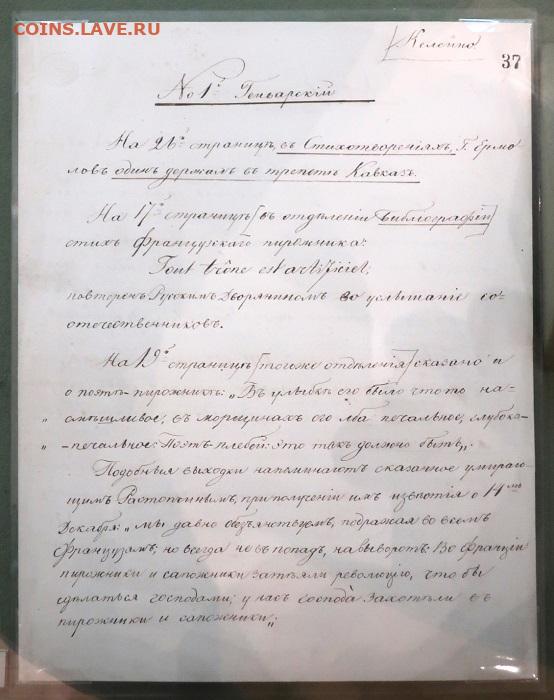 COINS.LAVE.RU
Келейно
37
No 1й Генварскій
На 26й страницѣ, въ Стихотвореніяхъ, Г. Ермо-
ловъ одинъ держалъ въ трепетѣ Кавказъ.
На 17й страницѣ [въ отдѣленіи Библіографіи]
стихъ французскаго пирожника:
Tout trône est artificiel;
повторенъ Русскимъ Дворяниномъ во услышаніе со-
отечественниковъ.
На 19й страницѣ [тогоже отдѣленія] сказано и
о поэтѣ-пирожникѣ: „Въ улыбкѣ его было что то на-
„ смѣшливое, въ морщинахъ его лба печальное, глубоко-
„ -печальное: Поэтъ-плебей: это такъ должно быть„.
Подобныя выходки напоминаютъ сказанное умираю-
щимъ Растопчинымъ, при полученіи имъ извѣстія о 14мъ
Декабря: „мы давно обезьянствуемъ, подражая во всемъ
Французамъ, но всегда не въ попадъ, на выворотъ: Во Франціи
пирожники и сапожники затѣяли революцію, что бы
сдѣлаться господами; у насъ господа захотѣли въ
пирожники и сапожники„;